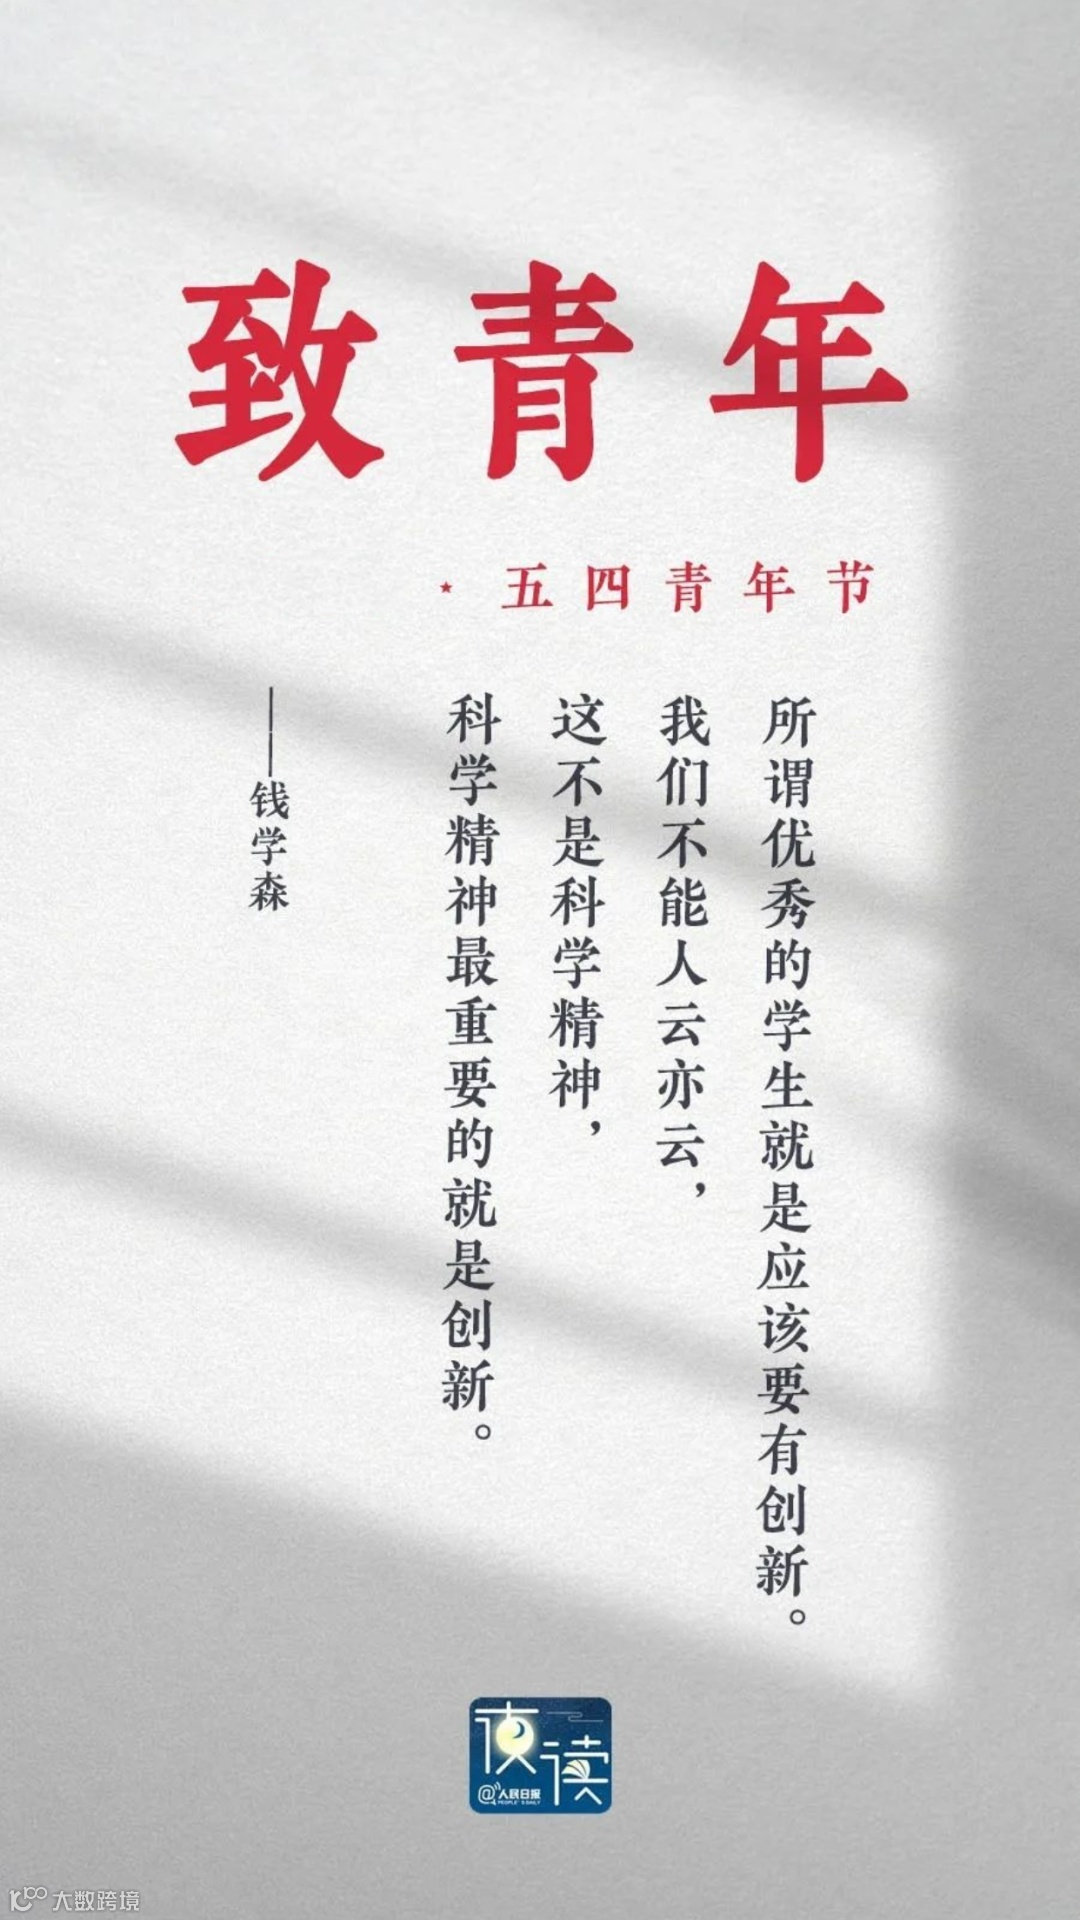 致青年
★五四青年节
所谓优秀的学生就是应该要有创新。
我们不能人云亦云，
这不是科学精神，
科学精神最重要的就是创新。
——钱学森
夜读
@人民日报
PEOPLE'S DAILY
大数跨境